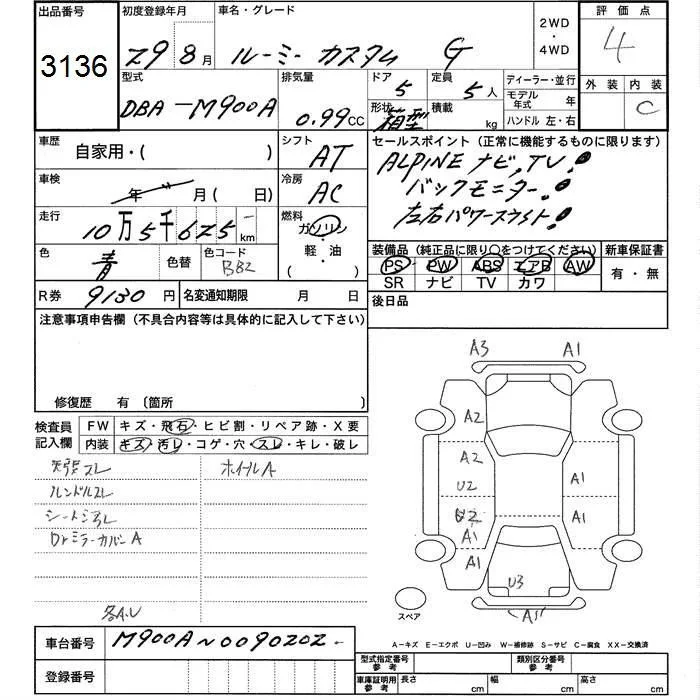 出品番号 初度登録年月 車名・グレード 2WD・4WD 評価点
3136 29 8月 ルーミー カスタム G 4
型式 排気量 ドア 定員 ディーラー・並行 外装 内装
DBA-M900A 0.99CC 5 5人 モデル年式 年 C
形状 積載 箱型 kg ハンドル 左・右
車歴 シフト セールスポイント (正常に機能するものに限ります)
自家用・( ) AT ALPINE ナビ,TV!
車検 冷房 バックモニター!
年 月(日) AC 左右パワースライド!
走行 燃料
10万5千625km ガソリン・軽・油・( )
色 色替 色コード 装備品 (純正品に限り〇をつけてください) 新車保証書
青 B82 PS PW ABS エアB AW 有・無
SR ナビ TV カワ
R券 9130円 名変通知期限 月 日 後日品
注意事項申告欄 (不具合内容等は具体的に記入して下さい)
修復歴 有 〔箇所
検査員記入欄 FW キズ・飛石・ヒビ割・リペア跡・X要
内装 キズ・汚レ・コゲ・穴・スレ・キレ・破レ
ホイールA
ハンドルスレ
Drミラーカバー A
各A.U
A3 A1
A2
A2
U2 A1
U2 A1
A1
A1
U3
スペア
A-キズ E-エクボ U-凹み W-補修跡 S-サビ C-腐食 XX-交換済
車台番号 M900A~0090202-
登録番号
型式指定番号参考 類別区分番号参考
車庫証明用参考 長さ cm 幅 cm 高さ cm